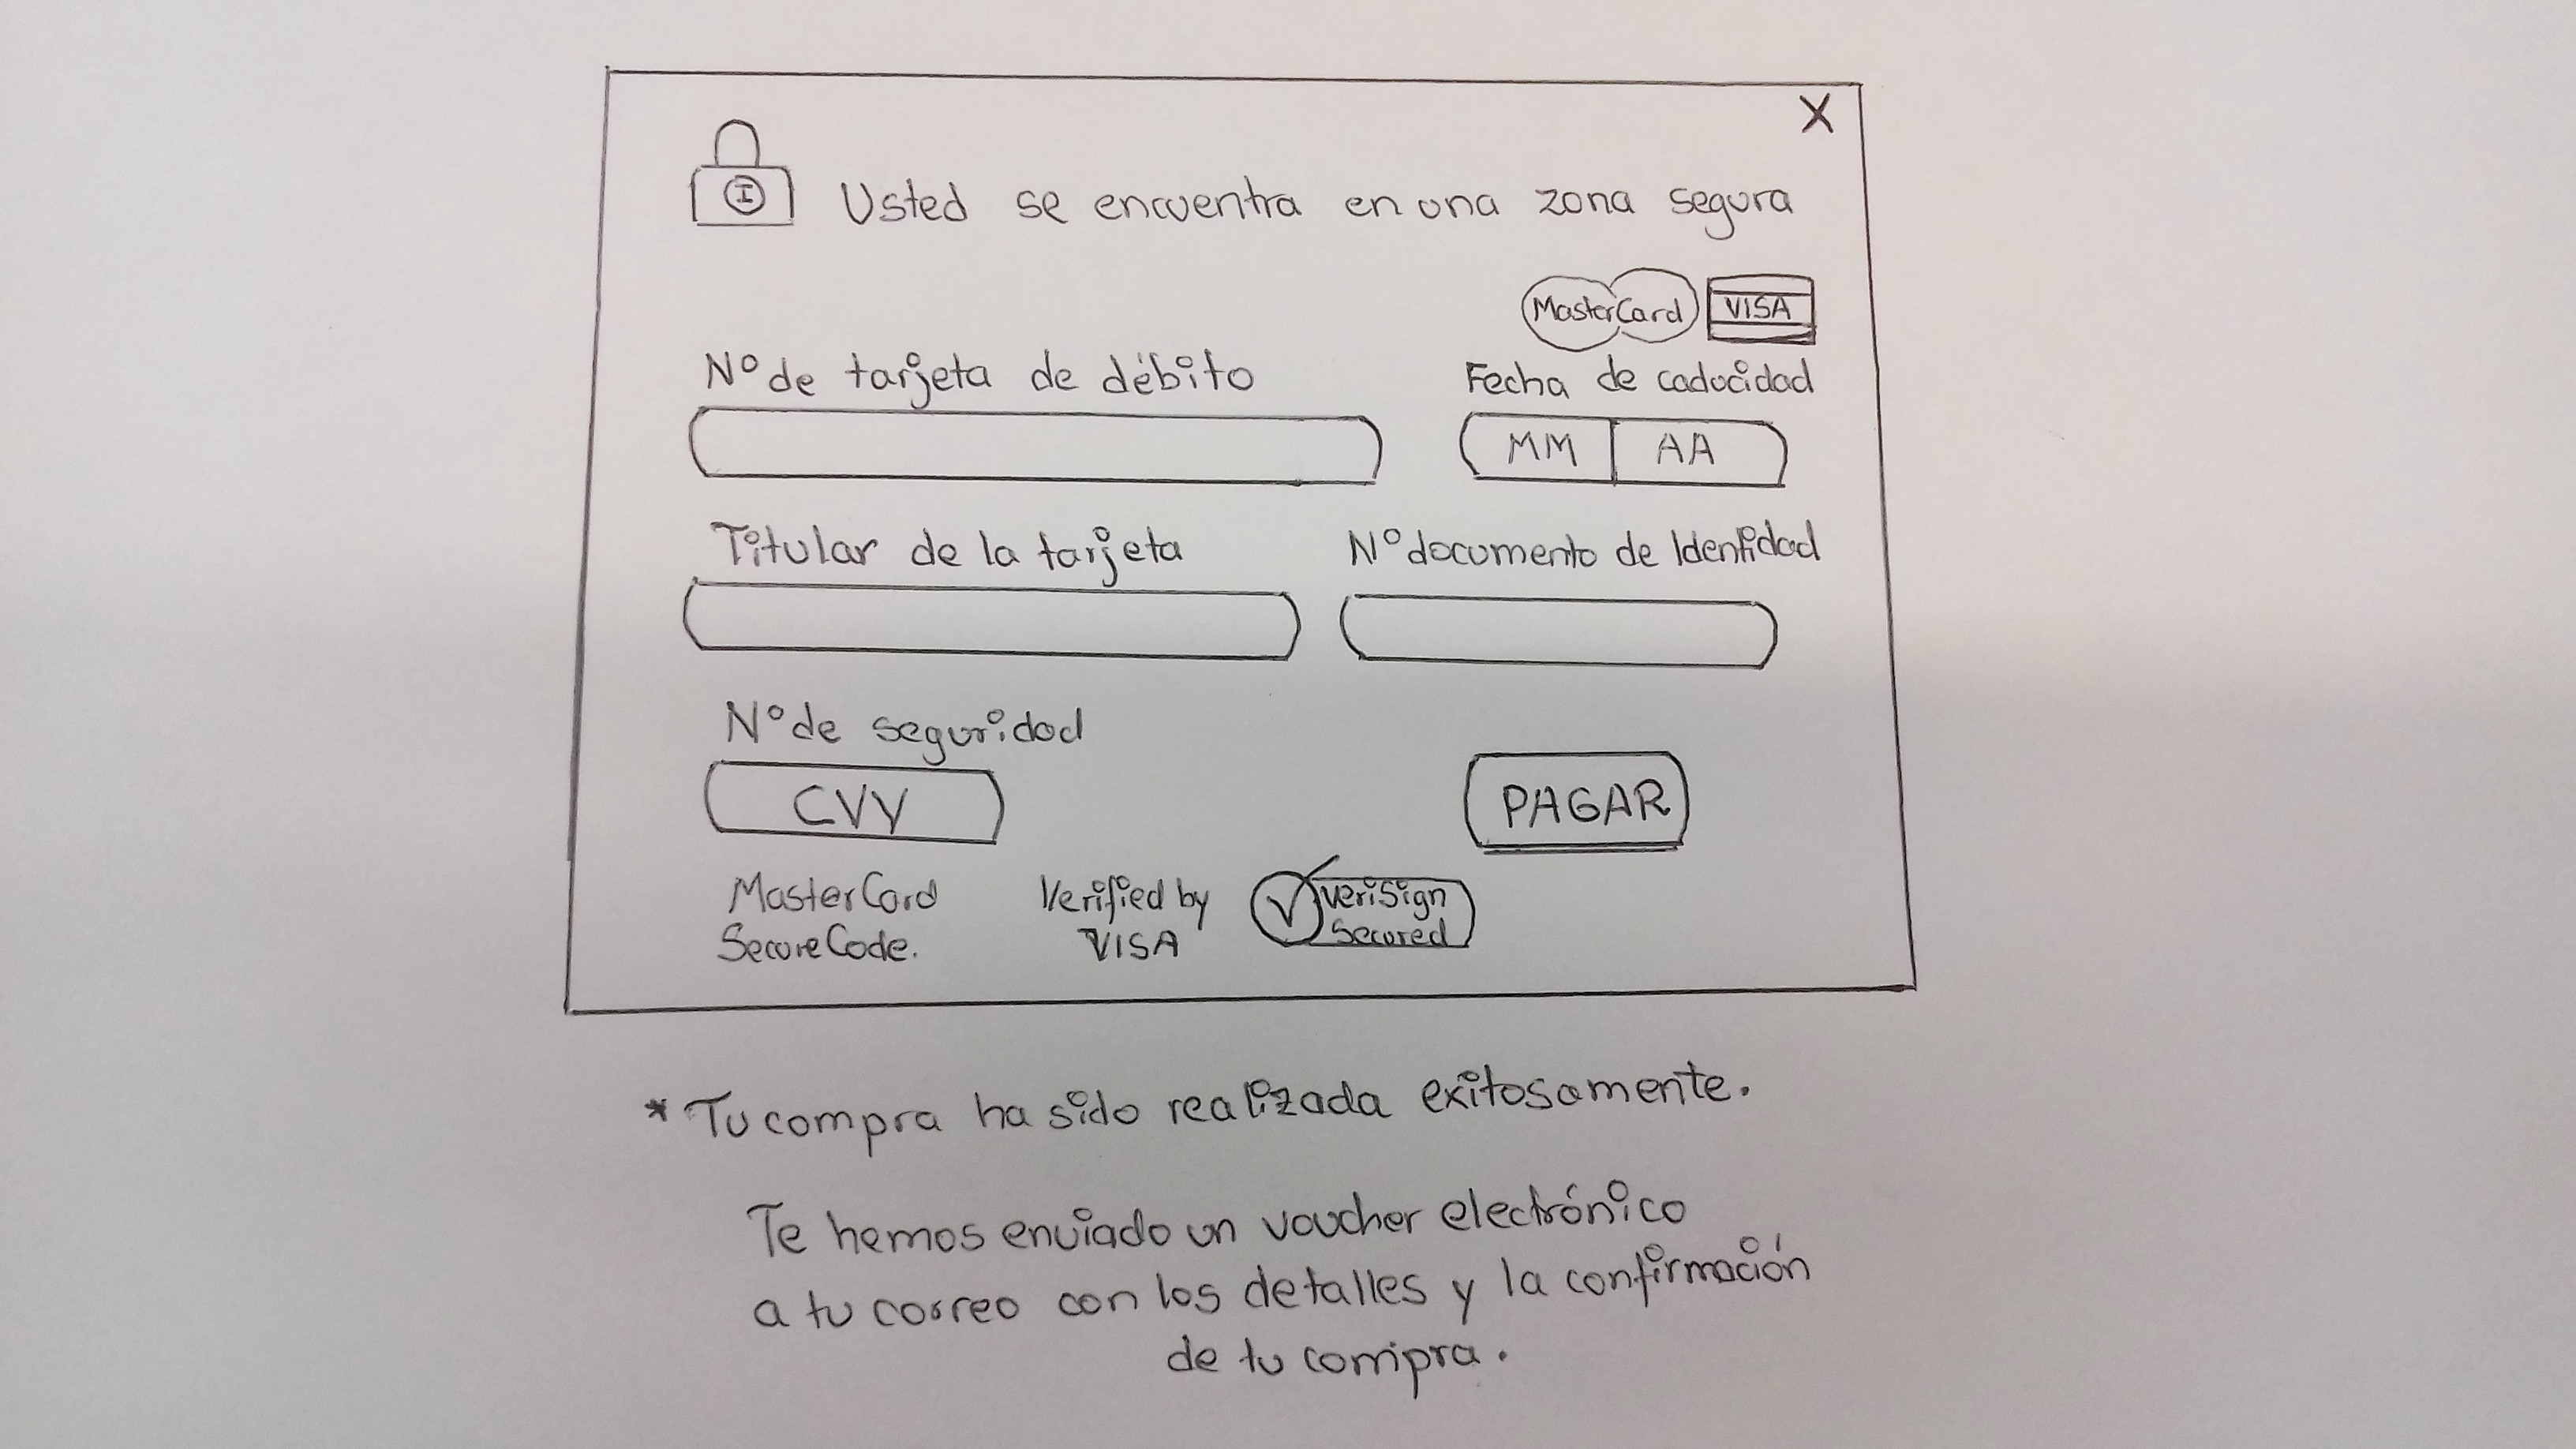 X
Usted se encuentra en una zona segura
MasterCard VISA
Nº de tarjeta de débito Fecha de caducidad
MM AA
Titular de la tarjeta Nº documento de Identidad
Nº de seguridad
CVV PAGAR
MasterCard Verified by VeriSign
SecureCode. VISA Secured
* Tu compra ha sido realizada exitosamente.
Te hemos enviado un voucher electrónico
a tu correo con los detalles y la confirmación
de tu compra.